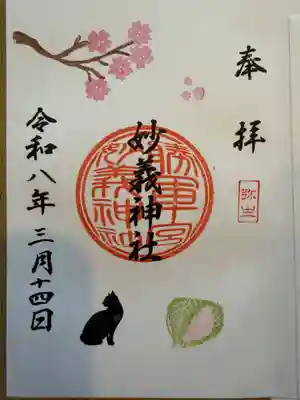 奉拝
弥生
妙義神社
令和八年三月十四日